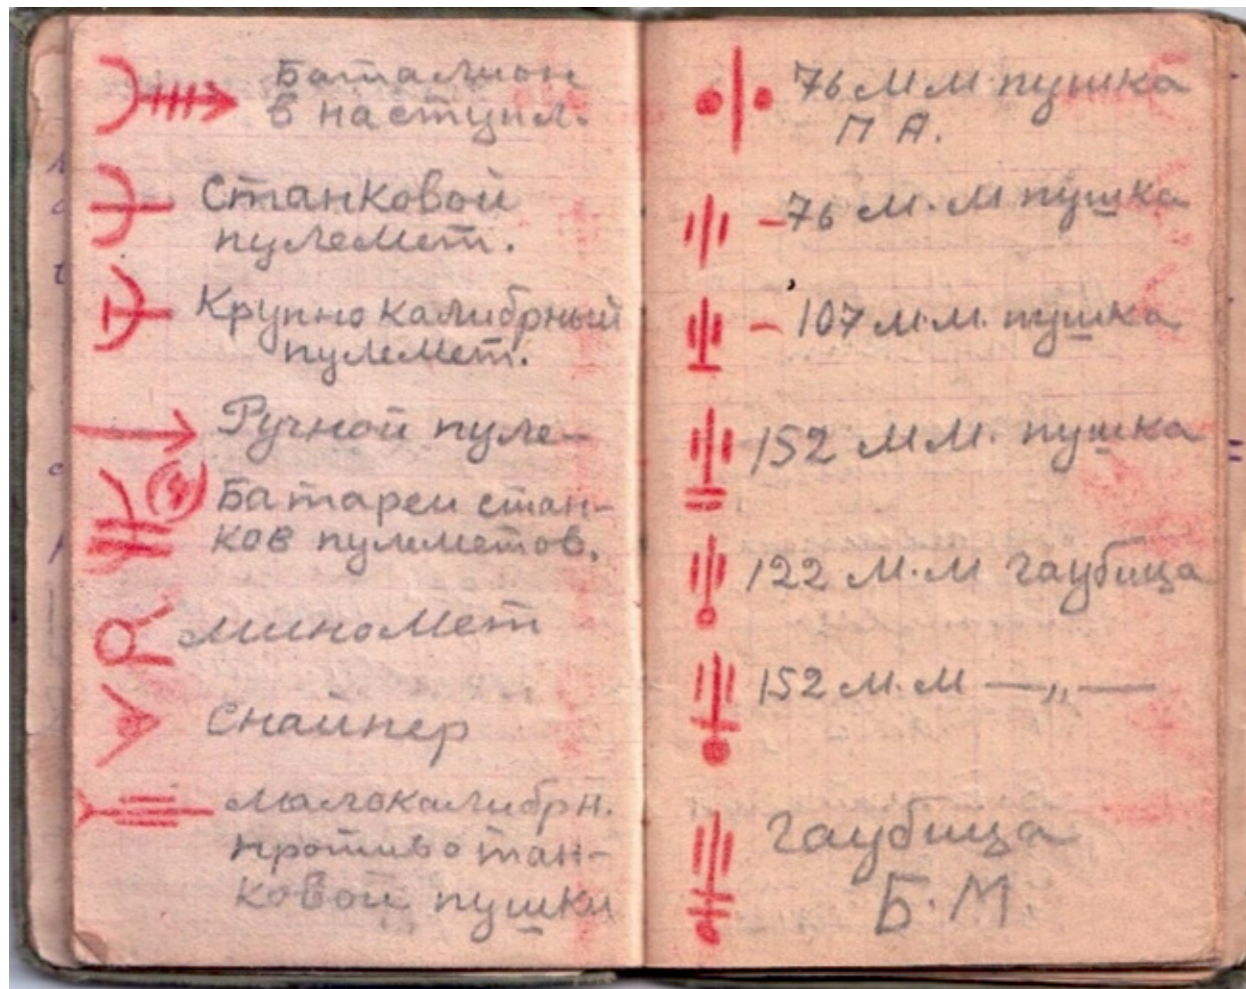 Баталион
в наступл.
Станковой
пулемет.
Крупно калибрный
пулемет.
Ручной пуле-
Батареи стан-
ков пулеметов.
миномет
Снайпер
малокалибрн.
противотан-
ковой пушки
76 м м пушка
П А.
-76 м.м пушка
- 107 м.м. пушка
152 мм. пушка
122 м.м гаубица
152 м.м —„—
гаубица
Б.М.